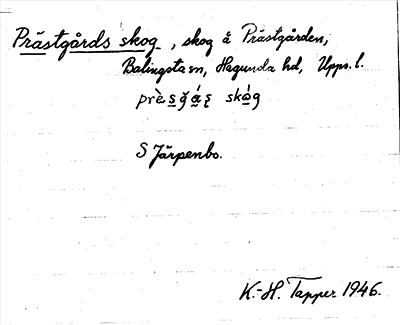 Prästgårds skog, skog å Prästgården,
Balingsta sn, Hagunda hd, Upps. l.
S Järpenbo.
K.-H. Tapper 1946.